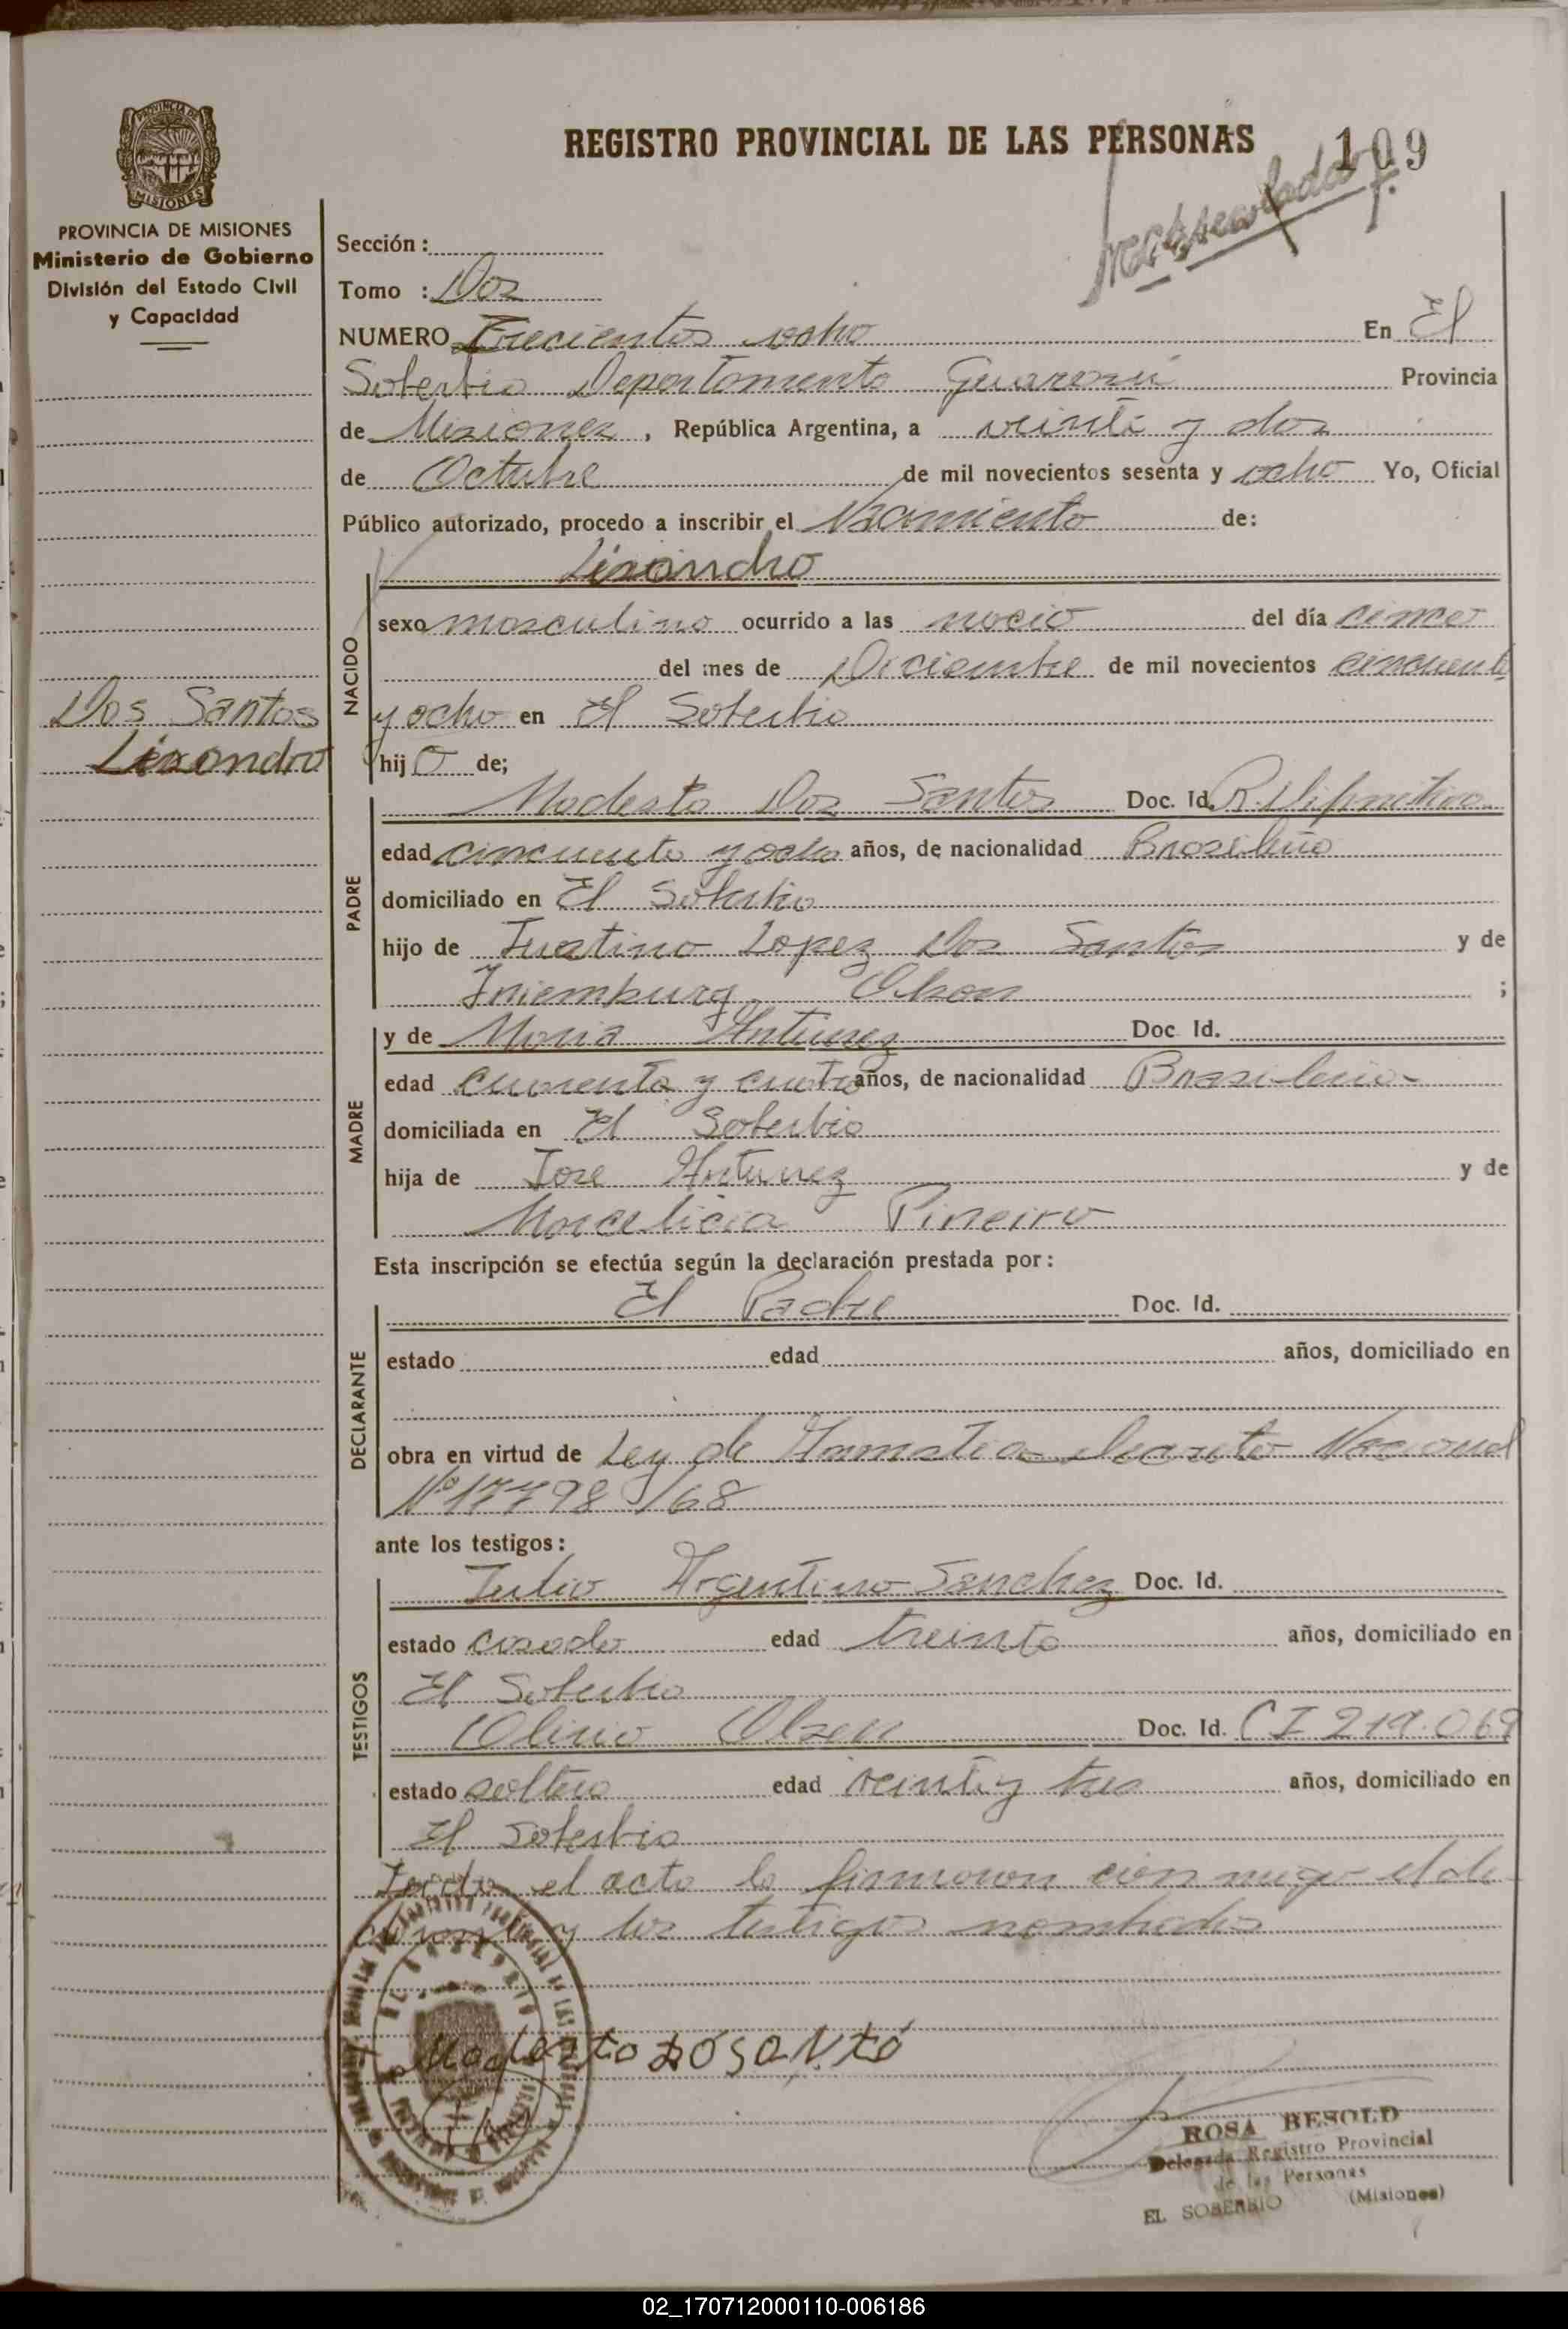 REGISTRO PROVINCIAL DE LAS PERSONAS
109
PROVINCIA DE MISIONES
Ministerio de Gobierno
División del Estado Civil
y Capacidad
Sección:
Tomo : Dos
NUMERO Trecientos ocho En El
Soberbio Departamento Guarani Provincia
de Misiones, República Argentina, a veinti y dos
de Octubre de mil novecientos sesenta y ocho Yo, Oficial
Público autorizado, procedo a inscribir el Nacimiento de:
Lisandro
NACIDO
sexo masculino ocurrido a las nocio del día cinco
del mes de Diciembre de mil novecientos cincuenta
y ocho en El Soberbio
hijo de;
Dos Santos
Lisandro
PADRE
Modesto Dos Santos Doc. Id. R. Difinitiva
edad cincuenta y ocho años, de nacionalidad Brasileño
domiciliado en El Soberbio
hijo de Justino Lopez Dos Santos y de
Iniemburg Olson ;
MADRE
y de Maria Antunez Doc. Id.
edad cuarenta y cuatro años, de nacionalidad Brasileña
domiciliada en El Soberbio
hija de Jose Antunez y de
Marcelicia Pineiro
Esta inscripción se efectúa según la declaración prestada por:
DECLARANTE
El Padre Doc. Id.
estado edad años, domiciliado en
obra en virtud de Ley de Amnistia Decreto Nacional
Nº 17798/68
ante los testigos:
TESTIGOS
Julio Argentino Sanchez Doc. Id.
estado casado edad treinta años, domiciliado en
El Soberbio
Olirio Olsen Doc. Id. CI 219.069
estado soltero edad veinti y tres años, domiciliado en
El Soberbio
el acta la firmaron con migo el de
y los testigos nombrados
Modesto DOSANTO
ROSA BESOLD
Delegada Registro Provincial
de las Personas
EL SOBERBIO (Misiones)
02_170712000110-006186